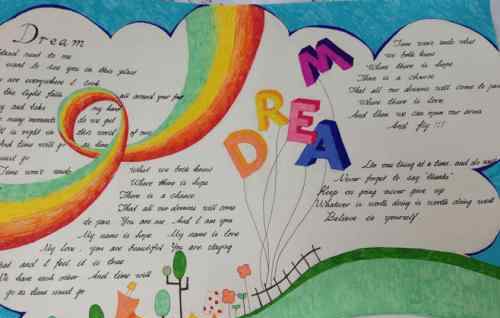 Dream
stand next to me
want to see you in this place
you are everywhere I look
this light falls all around your feet
and take my hand
many moments do we get
is right in this world of ours
And time will go as time
usual go
Time won't wade
What we both know
Where there is hope
There is a chance
That all our dreams will come
to pass You are me And I am you
My name is hope My name is love
My love, you are beautiful You are staying
that and I feel it is true
We have each other And time will
go as time usual go
DREAM
Time won't wade what
we both know
Where there is hope
There is a chance
That all our dreams will come to pass
Where there is love
And then we can open our arms
And fly !!!
Do one thing at a time, and do well
Never forget to say "thanks"
Keep on going never give up
Whatever is worth doing is worth doing well
Believe in yourself